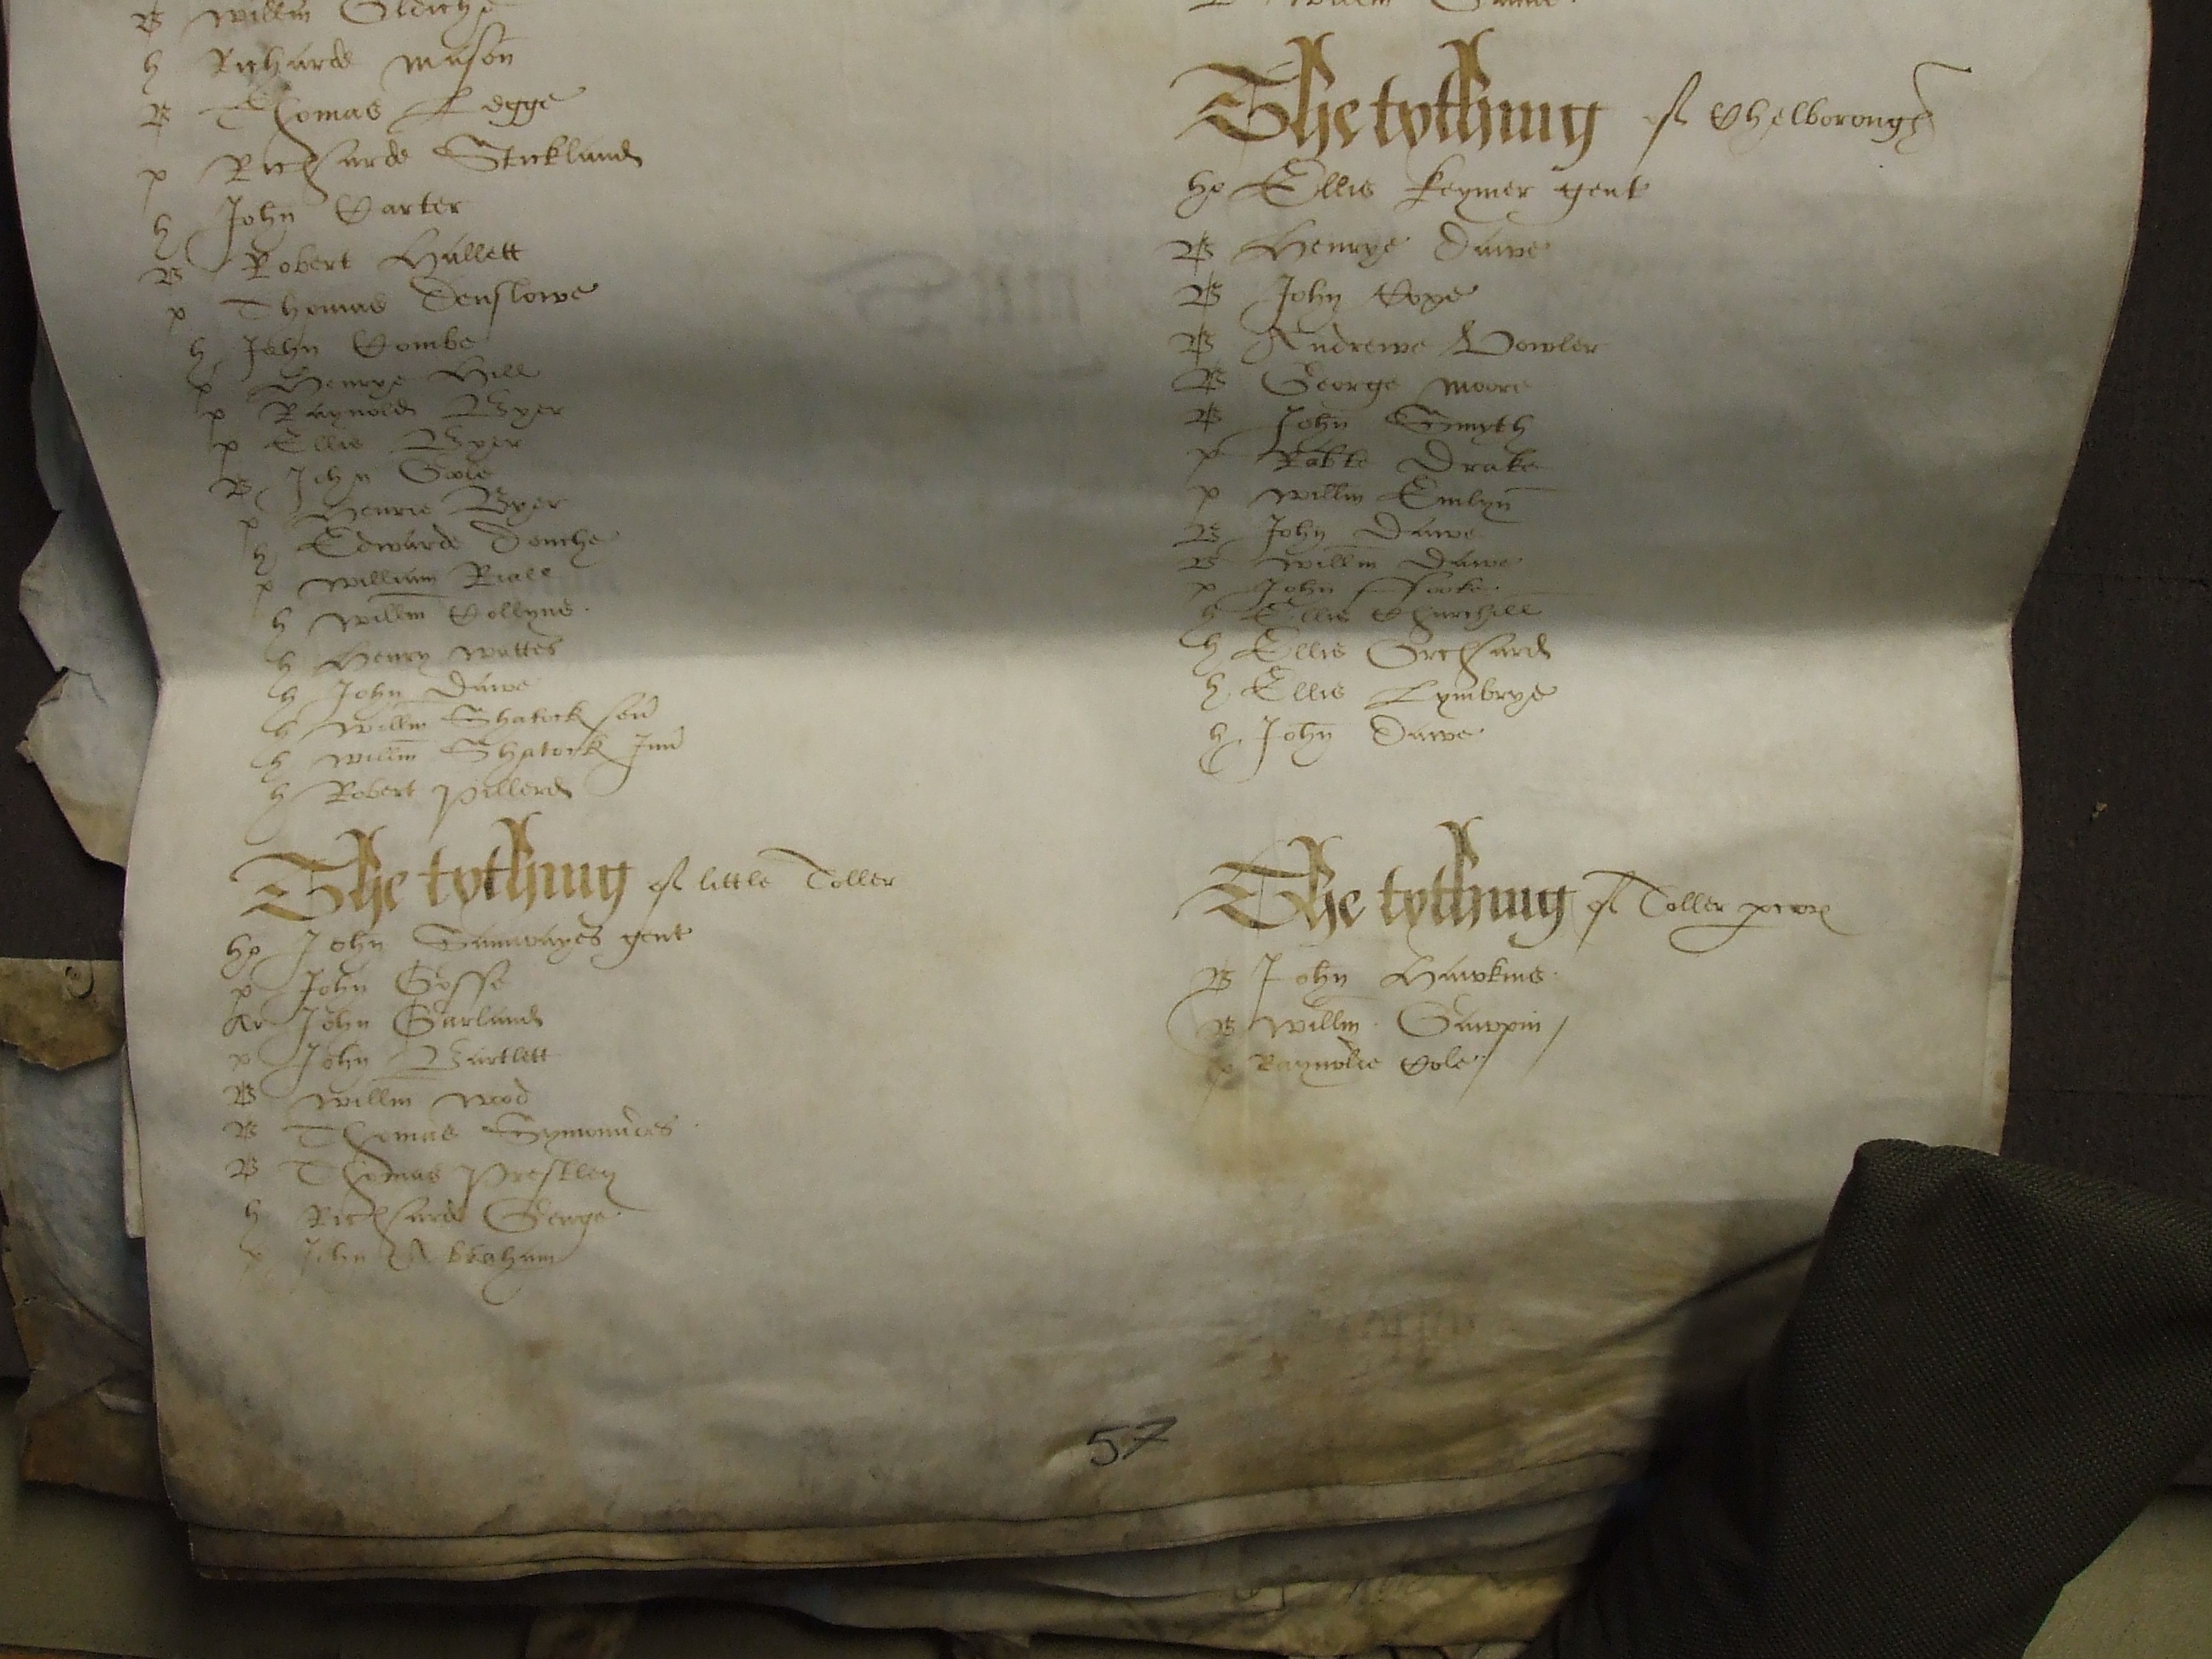 B Willm Oldiche
h Richarde Mason
B Thomas Legge
p Richarde Sticklande
h John Carter
B Robert Hullett
p Thomas Denslowe
h John Combe
p Henrye Hill
p Raynold Byer
p Ellis Byer
B John Cole
p Henrie Byer
h Edwarde Douche
p William Riall
h Willm Collyns
h Henry Wattes
h John Dawe
h Willm Shatock sen
h Willm Shatock Jun
h Robert Pillerd
The tythung of little Toller
hp John Samwayes gent
p John Gosse
Ar John Garland
p John Bartlett
B Willm Wood
B Thomas Symoundes
B Thomas Prestley
h Richarde George
p John Abraham
Willm
The tythung of Chelborough
hp Ellis Keymer gent
B Henrye Dawe
B John Cope
B Andrewe Vowler
B George Moore
B John Smyth
p Robte Drake
p Willm Emlyn
B John Dawe
B Willm Dawe
p John ffoote
h Ellis Churchill
h Ellis Orchard
h Ellis Lymbrye
h John Dawe
The tythung of Toller porcor
B John Hawkins
B Willm Gawpin
p Raynolde Cole
57